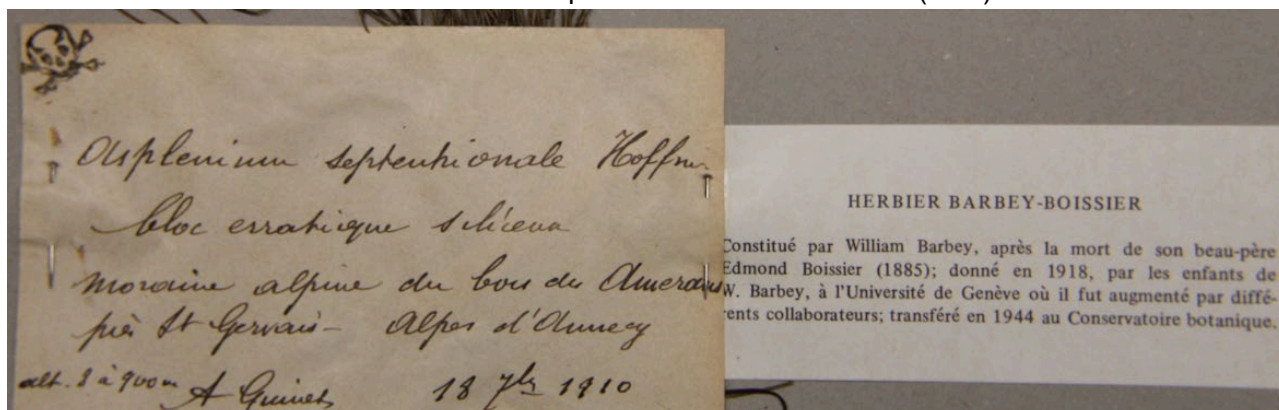 Asplenium septentrionale Hoffm.
bloc erratique siliceux
moraine alpine du bois du
près St Gervais - Alpes d'Annecy
alt. 8 à 900m A Guinet 18 7bre 1910
HERBIER BARBEY-BOISSIER
Constitué par William Barbey, après la mort de son beau-père
Edmond Boissier (1885); donné en 1918, par les enfants de
W. Barbey, à l'Université de Genève où il fut augmenté par diffé-
rents collaborateurs; transféré en 1944 au Conservatoire botanique.